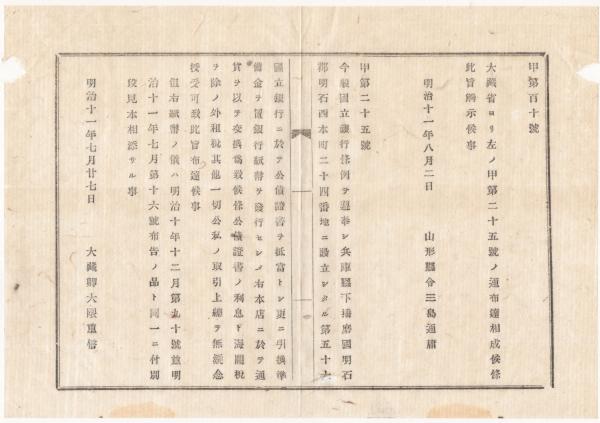 甲第百十號
大藏省ヨリ左ノ甲第二十五號ノ通布達相成候條
此旨諭示候事
明治十一年八月二日
山形縣令三島通庸
甲第二十五號
今般國立銀行條例ヲ遵奉シ兵庫縣下播磨國明石
郡明石西本町二十四番地ニ設立シタル第五十六
國立銀行ニ於テ公債證書ヲ抵當トシ更ニ引換準
備金ヲ置銀行紙幣ヲ發行セシメ右本店ニ於テ通
貨ヲ以テ交換爲致候條公債證書ノ利息ト海關税
ヲ除ノ外租税其他一切公私ノ取引上總テ無疑念
授受可致此旨布達候事
但右紙幣ノ儀ハ明治十年十二月第九十號並明
治十一年七月第十六號布告ノ品ト同一ニ付別
段見本相添サル事
明治十一年七月廿七日
大藏卿大隈重信